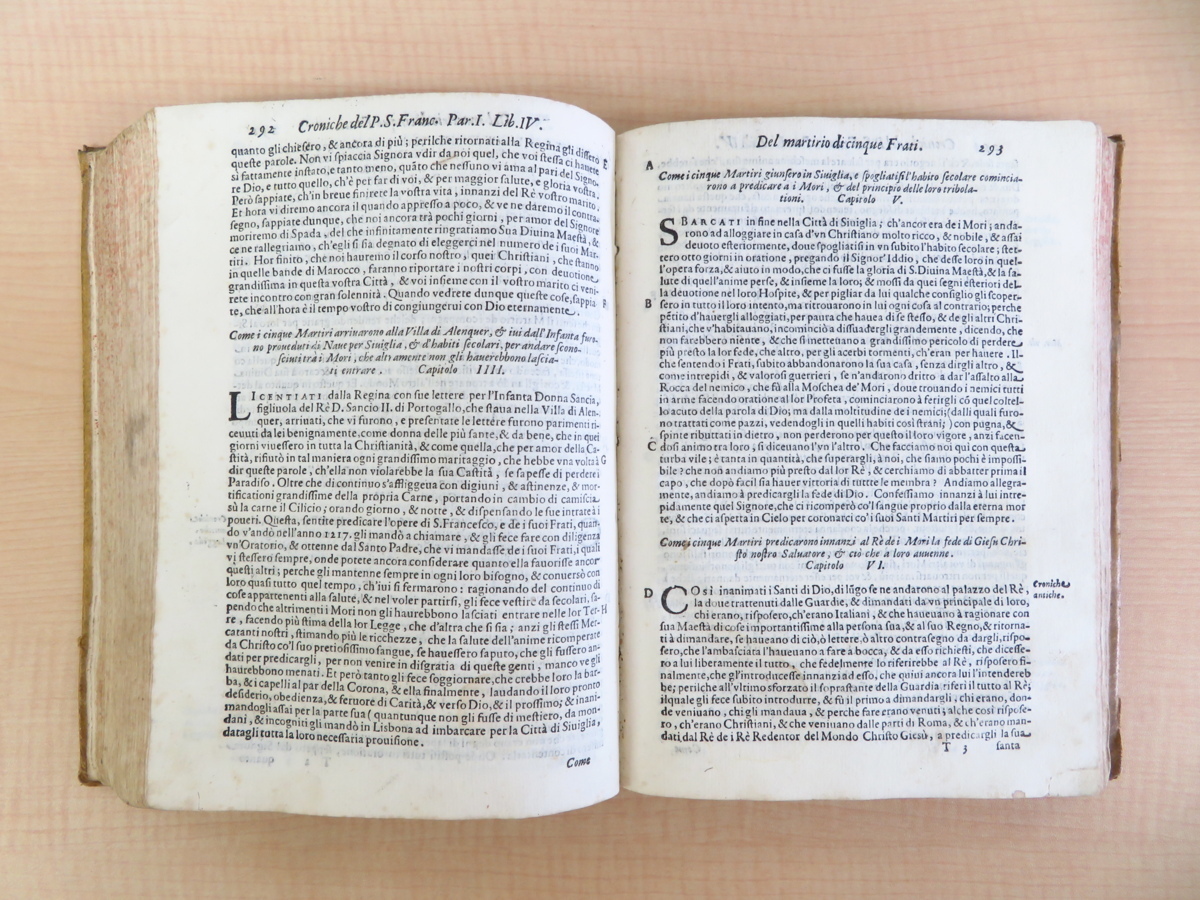 292 Croniche del P.S. Franc. Par. I. Lib. IV.
quanto gli chiesero, & ancora di più; perilche ritornati alla Regina gli dissero E
queste parole. Non vi spiaccia Signora vdir da noi quel, che voi stessa ci hauete
sì fattamente instato, e tanto meno, quãto che nessuno vi ama al pari del Signo-
re Dio, e tutto quello, ch'è per far di voi, & per maggior salute, e gloria vostra.
Però sappiate, ch'in breue finirete la vostra vita, innanzi del Rè vostro marito.
Et hora vi diremo ancora il quando appresso a poco, & ve ne daremo il contra-
segno, sappiate dunque, che noi ancora trà pochi giorni, per amor del Signore
moriremo di Spada, del che infinitamente ringratiamo Sua Diuina Maestà, &
ce ne rallegriamo, ch'egli si sia degnato di eleggerci nel numero de i suoi Mar-
tiri. Hor finito, che noi hauremo il corso nostro, quei Christiani, che stanno
in quelle bande di Marocco, faranno riportare i nostri corpi, con deuotione
grandissima in questa vostra Città, & voi insieme con il vostro marito ci veni-
rete incontro con gran solennità. Quando vedrete dunque queste cose, sappia- F
te, che all'hora è il tempo vostro di congiungerui con Dio eternamente.
Come i cinque Martiri arriuarono alla Villa di Alenquer, & iui dall'Infanta furo-
no proueduti di Naue per Siuiglia, & d'habiti secolari, per andare scono-
sciuti trà i Mori, che altramente non gli hauerebbono lascia-
ti entrare. Capitolo IIII.
LICENTIATI dalla Regina con sue lettere per l'Infanta Donna Sancia,
figliuola del Rè D. Sancio II. di Portogallo, che staua nella Villa di Alen-
quer, arriuati, che vi furono, e presentate le lettere furono parimenti ri-
ceuuti da lei benignamente, come donna delle più sante, & da bene, che in quei
giorni viuessero in tutta la Christianità, & come quella, che per amor della Ca-
stità, rifiutò in tal maniera ogni grandissimo maritaggio, che hebbe vna volta à G
dir queste parole, ch'ella non violarebbe la sua Castità, se sapesse di perdere il
Paradiso. Oltre che di continuo s'affliggeua con digiuni, & astinenze, & mor-
tificationi grandissime della propria Carne, portando in cambio di camiscia
sù la carne il Cilicio; orando giorno, & notte, & dispensando le sue intrate à i
poueri. Questa, sentite predicare l'opere di S. Francesco, e de i suoi Frati, quan-
do v'andò nell'anno 1217. gli mandò a chiamare, & gli fece fare con diligenza
vn'Oratorio, & ottenne dal Santo Padre, che vi mandasse de i suoi Frati, i quali
vi stessero sempre, onde potete ancora considerare quanto ella fauorisse anco
questi altri; perche gli mantenne sempre in ogni loro bisogno, & conuersò con
loro quasi tutto quel tempo, ch'iui si fermarono: ragionando del continuo di
cose appartenenti alla salute, & nel voler partirsi, gli fece vestire da secolari, sa-
pendo che altrimenti i Mori non gli haurebbono lasciati entrare nelle lor Ter- H
re, facendo più stima della lor Legge, che d'altra che si sia; anzi gli stessi Mer-
catanti nostri, stimando più le ricchezze, che la salute dell'anime ricomperate
da Christo co'l suo pretiosissimo sangue, se hauessero saputo, che gli fussero an-
dati per predicargli, per non venire in disgratia di queste genti, manco ve gli
haurebbono menati. Et però tanto gli fece soggiornare, che crebbe loro la bar-
ba, & i capelli al par della Corona, & ella finalmente, laudando il loro pronto
desiderio, obedienza, & feruore di Carità, & verso Dio, & il prossimo; & inani-
mandogli assai per la parte sua (quantunque non gli fusse di mestiero, da mon-
dani, & incogniti gli mandò in Lisbona ad imbarcare per la Città di Siuiglia,
datagli tutta la loro necessaria prouisione.
Come
Del martirio di cinque Frati. 293
A
Come i cinque Martiri giunsero in Siuiglia, e spogliatisi l'habito secolare comincia-
rono a predicare a i Mori, & del principio delle loro tribola-
tioni. Capitolo V.
SBARCATI in fine nella Città di Siuiglia; ch'ancora era de i Mori; anda-
rono ad alloggiare in casa d'vn Christiano molto ricco, & nobile, & assai
deuoto esteriormente, doue spogliatisi in vn subito l'habito secolare; stet-
tero otto giorni in oratione, pregando il Signor'Iddio, che desse loro in quel-
l'opera forza, & aiuto in modo, che ci fusse la gloria di S. Diuina Maestà, & la sa-
lute di quell'anime perse, & insieme la loro; & mossi da quei segni esteriori del-
la deuotione nel loro Hospite, & per pigliar da lui qualche consiglio gli scoper-
B sero in tutto il loro intento, ma ritrouarono in lui ogni cosa al contrario, perche
pẽtito d'hauergli alloggiati, per paura che hauea di se stesso, & de gli altri Chri-
stiani, che v'habitauano, incominciò a dissuadergli grandemente, dicendo, che
non farebbero niente, & che si metteuano a grandissimo pericolo di perdere
più presto la lor fede, che altro, per gli acerbi tormenti, ch'eran per hauere. Il-
che sentendo i Frati, subito abbandonarono la sua casa, senza dirgli altro, &
come intrepidi, & valorosi guerrieri, se n'andarono dritto a dar l'assalto alla
Rocca del nemico, che fù alla Moschea de' Mori, doue trouando i nemici tutti
in arme facendo oratione al lor Profeta, cominciarono à ferirgli cõ quel coltel-
lo acuto della parola di Dio; ma dalla moltitudine de i nemici; (dalli quali furo-
no trattati come pazzi, vedendogli in quelli habiti così strani;) con pugna, &
spinte ributtati in dietro, non perderono per questo il loro vigore, anzi facen-
C dosi animo tra loro; si diceuano l'vn l'altro. Che facciamo noi qui con questa
turba vile; è tanta in quantità, che superargli, à noi, che siamo pochi è impossi-
bile? che non andiamo più presto dal lor Rè, & cerchiamo di abbatter prima il
capo, che dopò facil sia hauer vittoria di tuttte le membra? Andiamo allegra-
mente, andiamo à predicargli la fede di Dio. Confessiamo innanzi à lui intre-
pidamente quel Signore, che ci ricomperò co'l sangue proprio dalla eterna mor
te, & che ci aspetta in Cielo per coronarci co' i suoi Santi Martiri per sempre.
Come i cinque Martiri predicarono innanzi al Rè de i Mori la fede di Giesu Chri-
sto nostro Saluatore, & ciò che a loro auuenne.
Capitolo VI.
D COSI inanimati i Santi di Dio, di lũgo se ne andarono al palazzo del Rè,
Croniche antiche.
la doue trattenuti dalle Guardie, & dimandati da vn principale di loro,
chi erano, risposero, ch'erano Italiani, & che haueuano à ragionare con
sua Maestà di cose importantissime alla persona sua, & al suo Regno, & ritorna-
ti à dimandare, se haueano di ciò, ò lettere, ò altro contrasegno da dargli, rispo-
sero, che l'ambasciata l'haueuano a fare a bocca, & da esso richiesti, che dicesse-
ro a lui liberamente il tutto, che fedelmente lo riferirebbe al Rè, risposero fi-
nalmente, che gl'introducesse innanzi ad esso, che quiui ancor lui l'intendereb
be; perilche all'vltimo sforzato il soprastante della Guardia riferì il tutto al Rè;
il quale gli fece subito introdurre, & fù il primo a dimandargli, chi erano, don-
de veniuano, chi gli mandaua, & perche fare erano venuti; al che così rispose-
ro, ch'erano Christiani, & che veniuano dalle parti di Roma, & ch'erano man-
dati dal Rè de i Rè Redentor del Mondo Christo Giesù, a predicargli la sua
T 3 santa